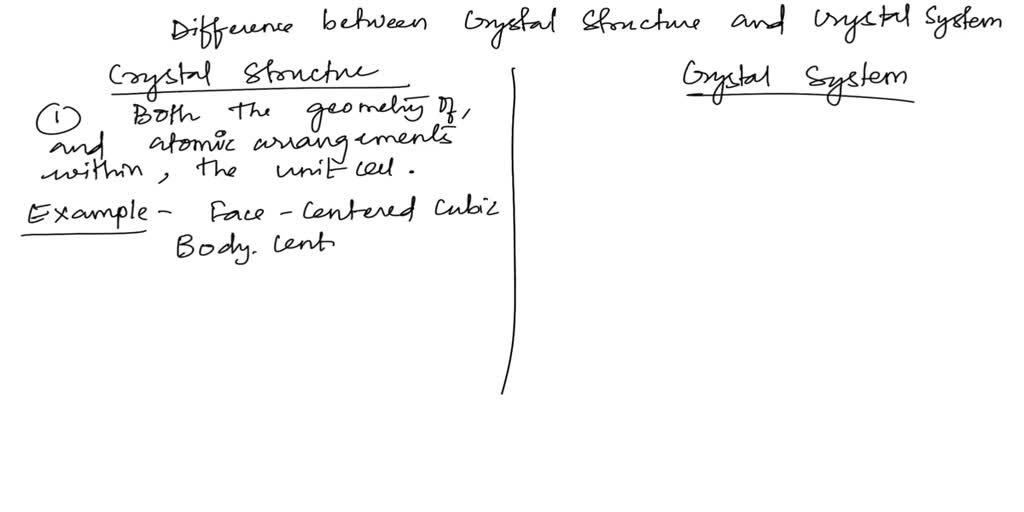 Difference between Crystal Structure and Crystal System
Crystal Structue
① Both the geometry of,
and atomic arrangements
within, the unit cell.
Example - Face - Centered Cubic
Body. Cent
Crystal System